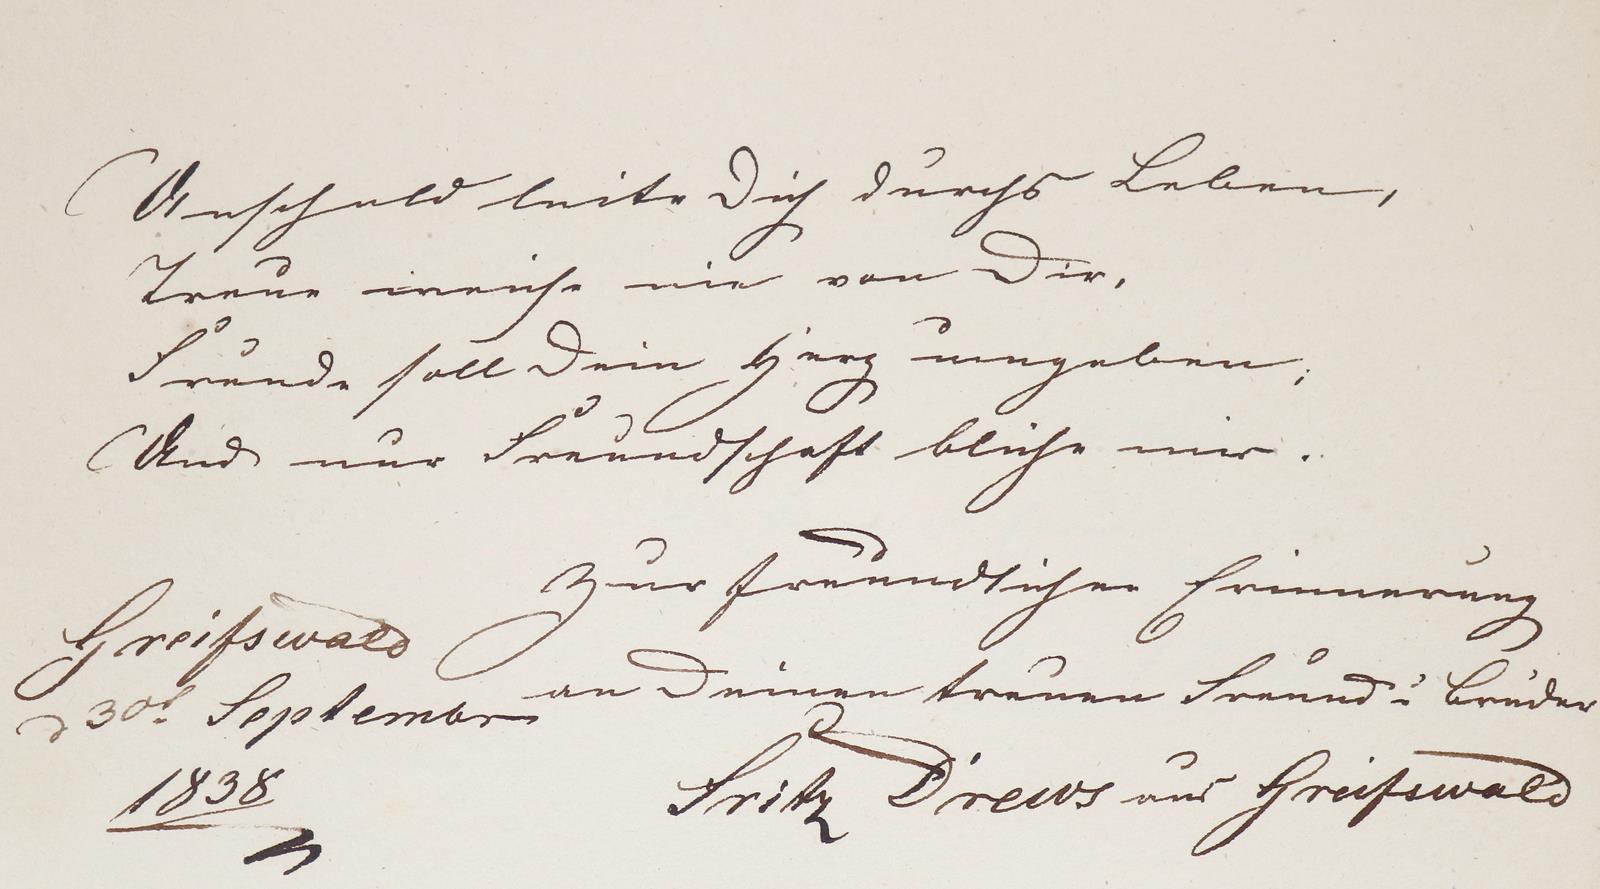 Unschuld leite Dich durchs Leben,
Treue weiche nie von Dir,
Freude soll Dein Herz umgeben,
Und nur Freundschaft bleibe mir.
Zur freundlichen Erinnerung
an Deinen treuen Freund u Bruder
Fritz Drews aus Greifswald
Greifswald
d 30st September
1838